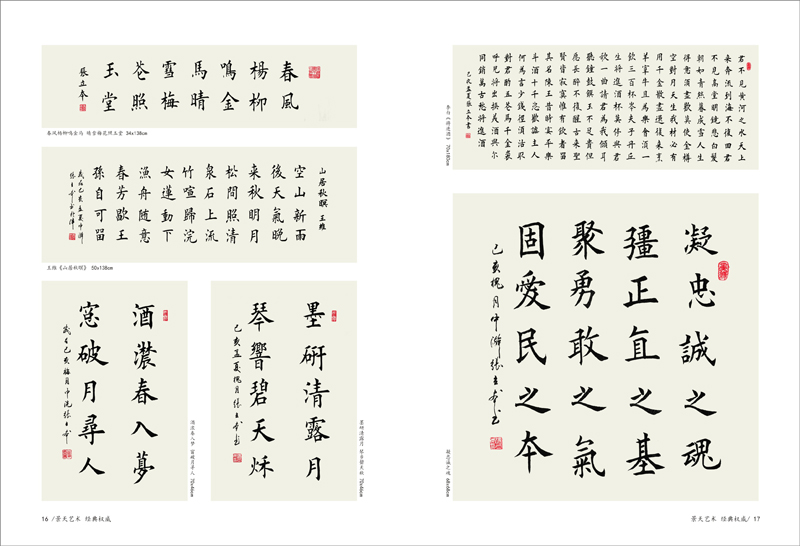 春風
楊柳
鳴金
馬晴
雪梅
花照
玉堂
張立本
春风杨柳鸣金马 晴雪梅花照玉堂 34x138cm
山居秋暝 王維
空山新雨
後天氣晚
来秋明月
松間照清
泉石上流
竹喧歸浣
女蓮動下
漁舟随意
春芳歇王
孫自可留
歲在己亥孟夏中澣
張立本書於津
王维《山居秋暝》 50x138cm
酒濃春入夢
窓破月尋人
歲在己亥梅月中浣張立本
酒浓春入梦 窗破月寻人 70x46cm
墨研清露月
琴響碧天秋
己亥孟夏槐月張立本書
墨研清露月 琴音碧天秋 70x46cm
16 /景天艺术 经典权威
君不見黄河之水天上
来奔流到海不復回君
不見高堂明鏡悲白髮
朝如青絲暮成雪人生
得意須盡歡莫使金樽
空對月天生我材必有
用千金散盡還復来烹
羊宰牛且為樂會須一
飲三百杯岑夫子丹丘
生將進酒杯莫停與君
歌一曲請君為我傾耳
聽鐘鼓饌玉不足貴但
願長醉不復醒古来聖
賢皆寂寞惟有飲者留
其名陳王昔時宴平樂
斗酒十千恣歡謔主人
何為言少錢徑須沽取
對君酌五花馬千金裘
呼兒將出换美酒與尔
同銷萬古愁將進酒
己亥孟夏張立本書
李白《将进酒》 70x180cm
凝忠誠之魂
疆正直之基
聚勇敢之氣
固愛民之本
己亥槐月中澣張立本書
凝忠诚之魂 68x68cm
景天艺术 经典权威/ 17